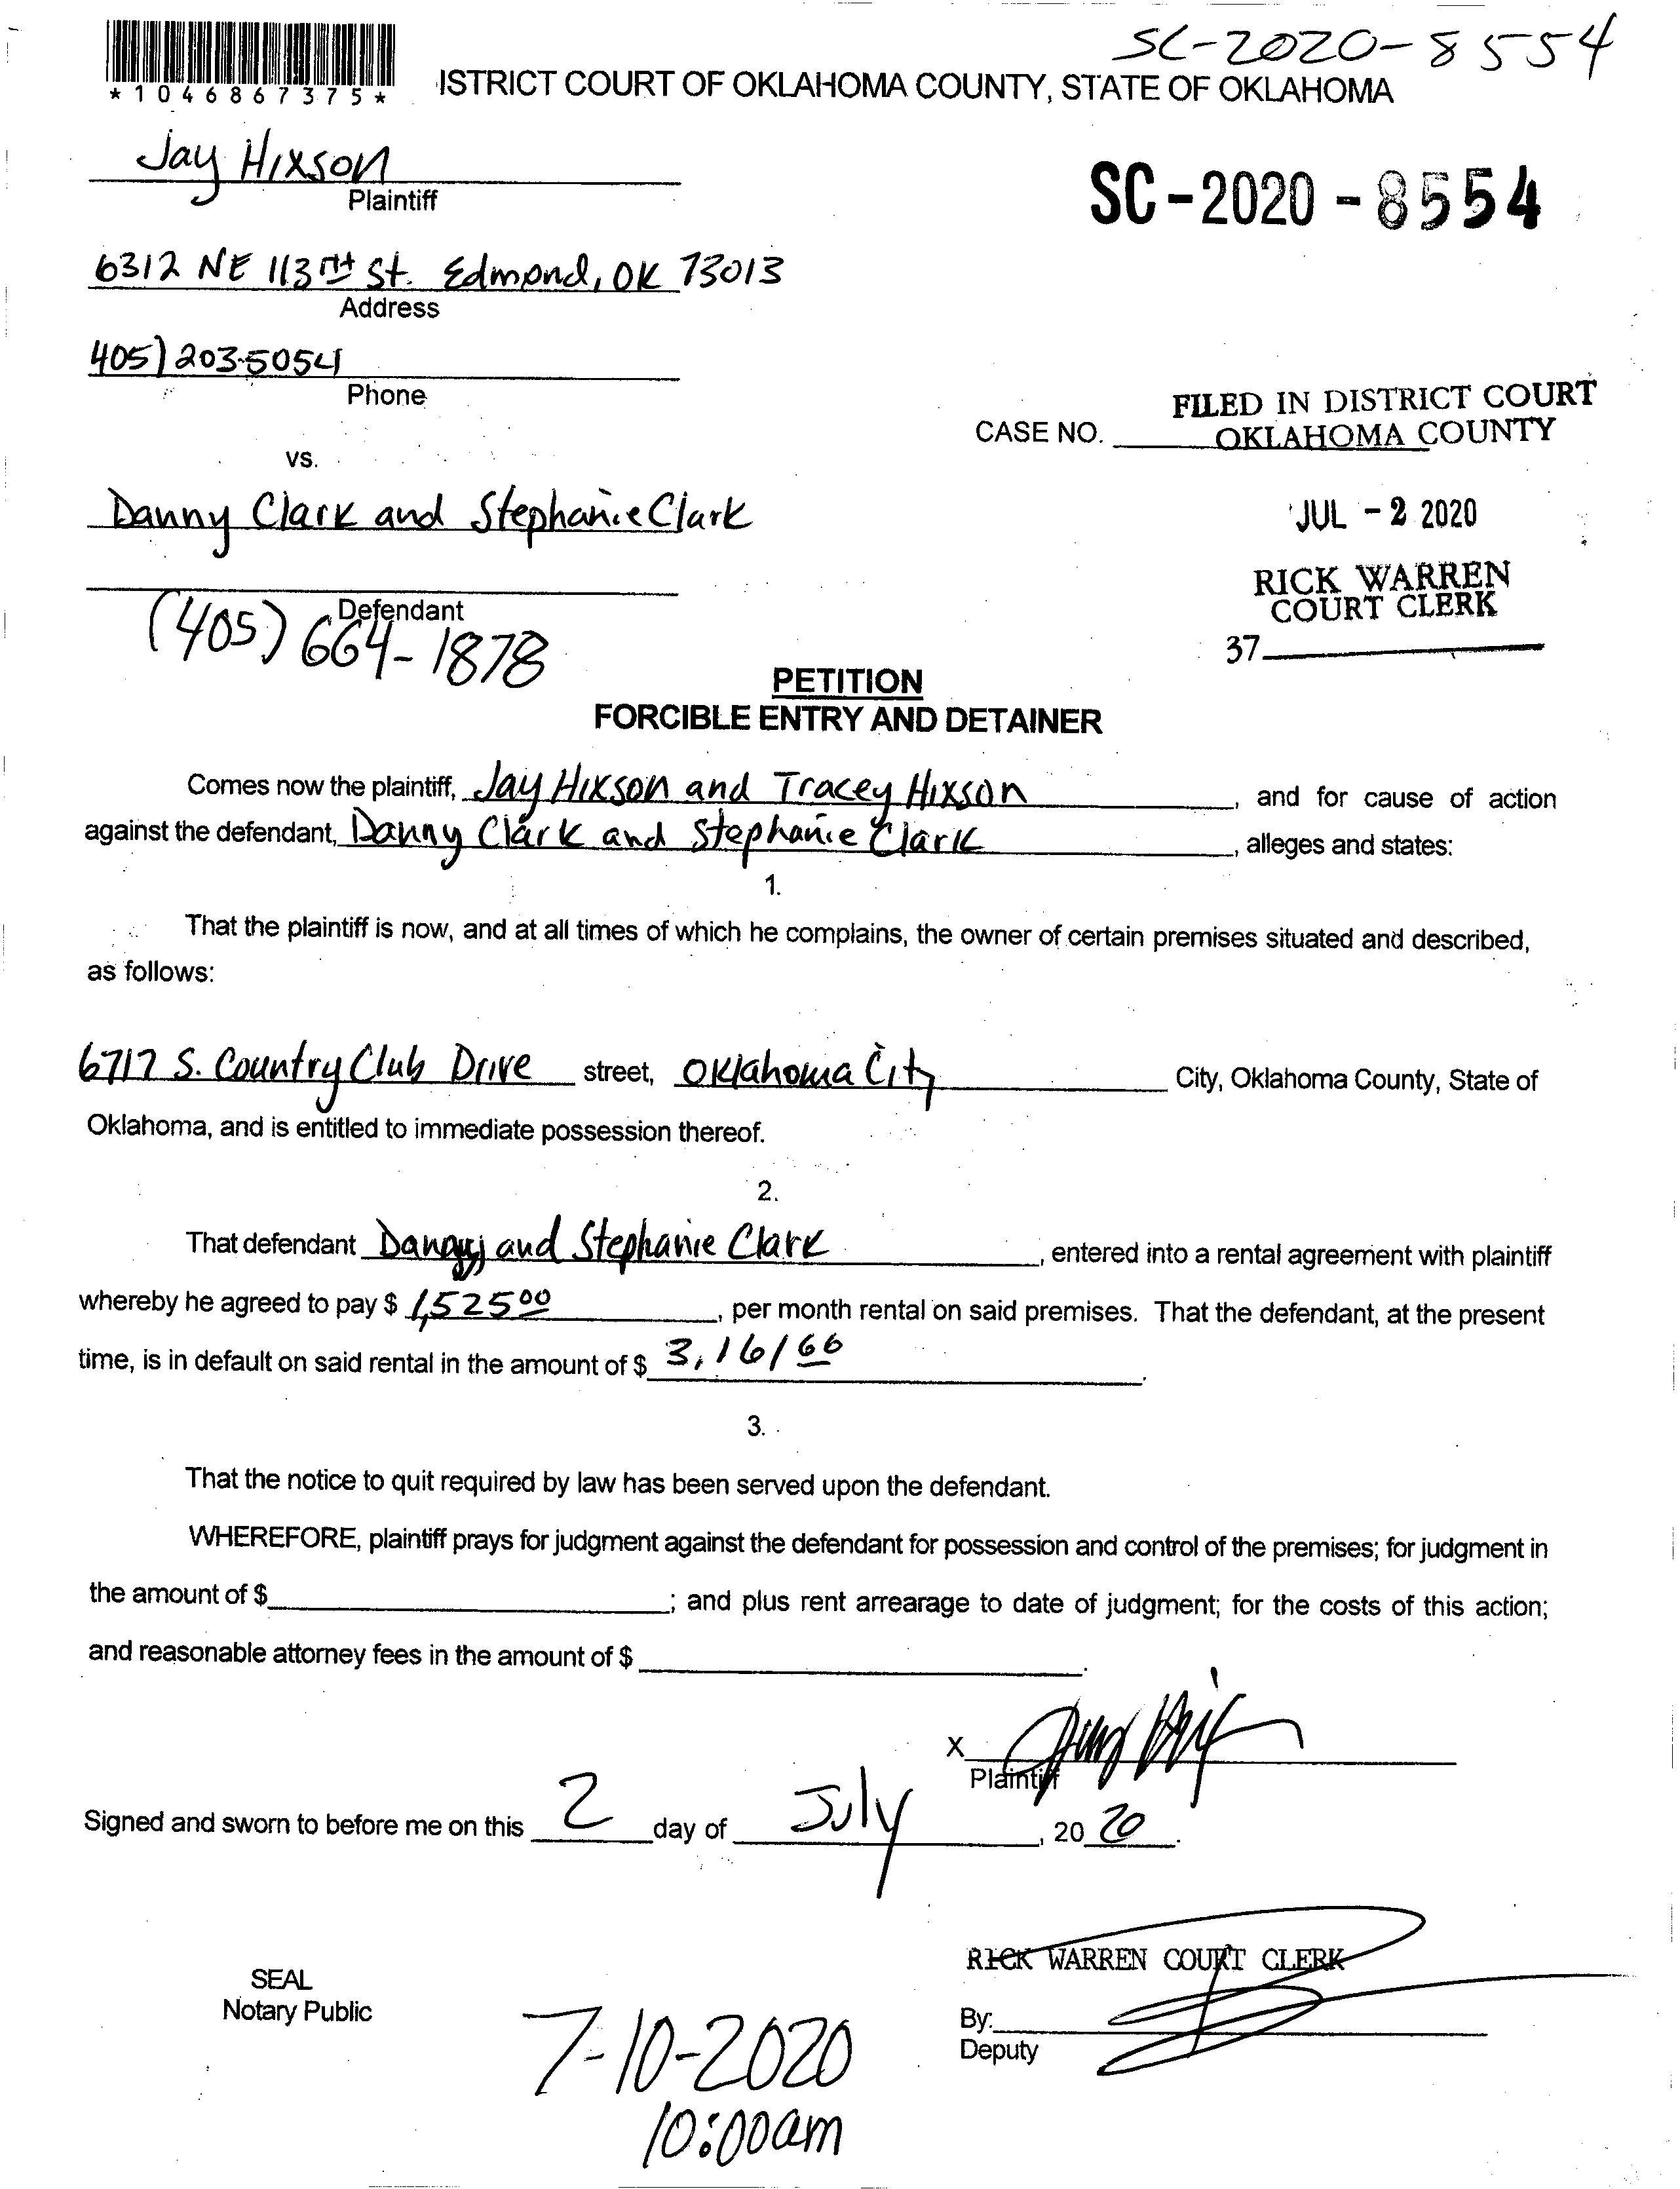 SC-2020-8554
*1046867375*
ISTRICT COURT OF OKLAHOMA COUNTY, STATE OF OKLAHOMA
Jay Hixson
Plaintiff
SC-2020-8554
6312 NE 113th St. Edmond, OK 73013
Address
405) 203-5054
Phone
FILED IN DISTRICT COURT
CASE NO. OKLAHOMA COUNTY
vs.
Danny Clark and Stephanie Clark
JUL - 2 2020
RICK WARREN
COURT CLERK
Defendant
(405) 664-1878
37
PETITION
FORCIBLE ENTRY AND DETAINER
Comes now the plaintiff, Jay Hixson and Tracey Hixson, and for cause of action
against the defendant, Danny Clark and Stephanie Clark, alleges and states:
1.
That the plaintiff is now, and at all times of which he complains, the owner of certain premises situated and described,
as follows:
6717 S. Country Club Drive street, Oklahoma City City, Oklahoma County, State of
Oklahoma, and is entitled to immediate possession thereof.
2.
That defendant Danny and Stephanie Clark, entered into a rental agreement with plaintiff
whereby he agreed to pay $ 1,525 00, per month rental on said premises. That the defendant, at the present
time, is in default on said rental in the amount of $ 3,161 66.
3.
That the notice to quit required by law has been served upon the defendant.
WHEREFORE, plaintiff prays for judgment against the defendant for possession and control of the premises; for judgment in
the amount of $ ; and plus rent arrearage to date of judgment; for the costs of this action;
and reasonable attorney fees in the amount of $ .
X
Plaintiff
Signed and sworn to before me on this 2 day of July, 20 20.
RICK WARREN COURT CLERK
SEAL
Notary Public
By:
Deputy
7-10-2020
10:00am